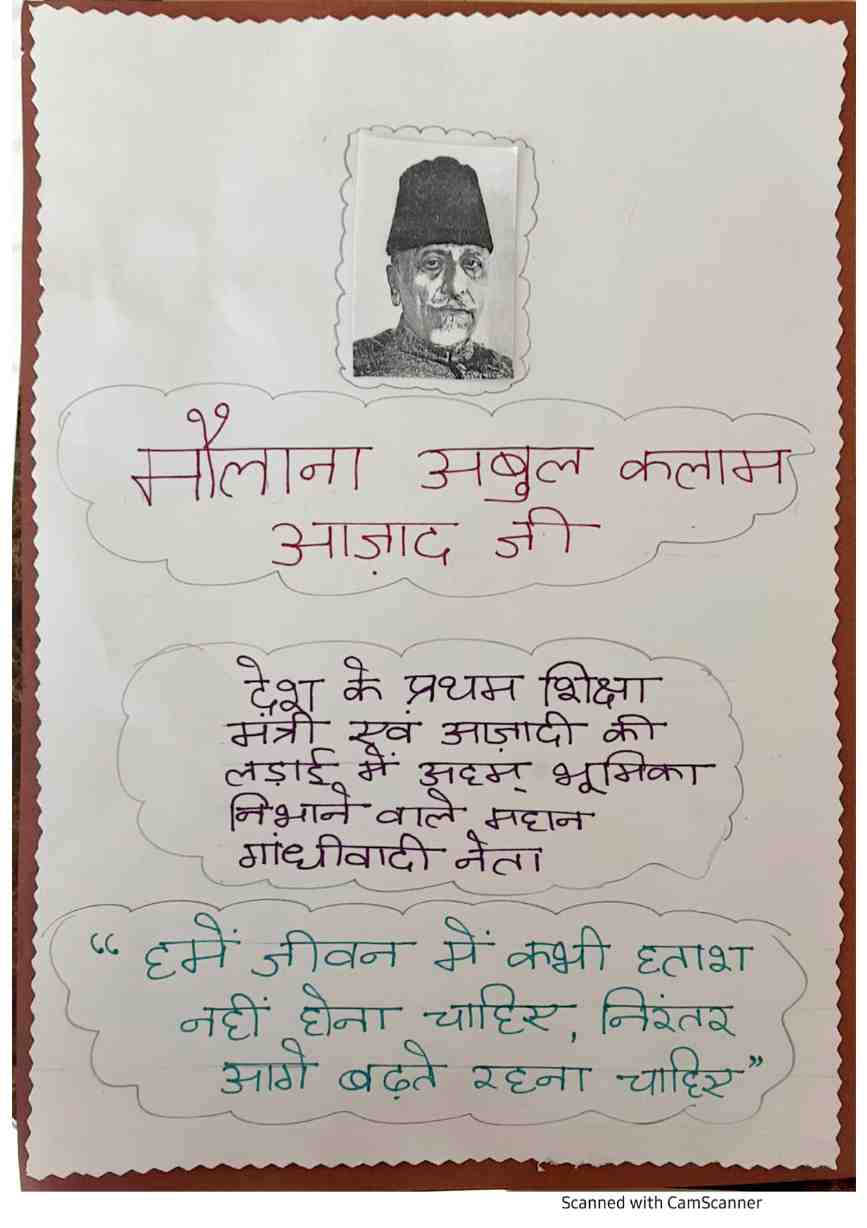 मौलाना अबुल कलाम
आज़ाद जी
देश के प्रथम शिक्षा
मंत्री एवं आज़ादी की
लड़ाई में अहम् भूमिका
निभाने वाले महान
गांधीवादी नेता
“ हमें जीवन में कभी हताश
नहीं होना चाहिए, निरंतर
आगे बढ़ते रहना चाहिए”
Scanned with CamScanner